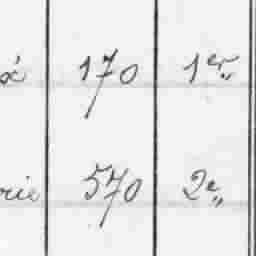 170 1er„
rie 570 2e„